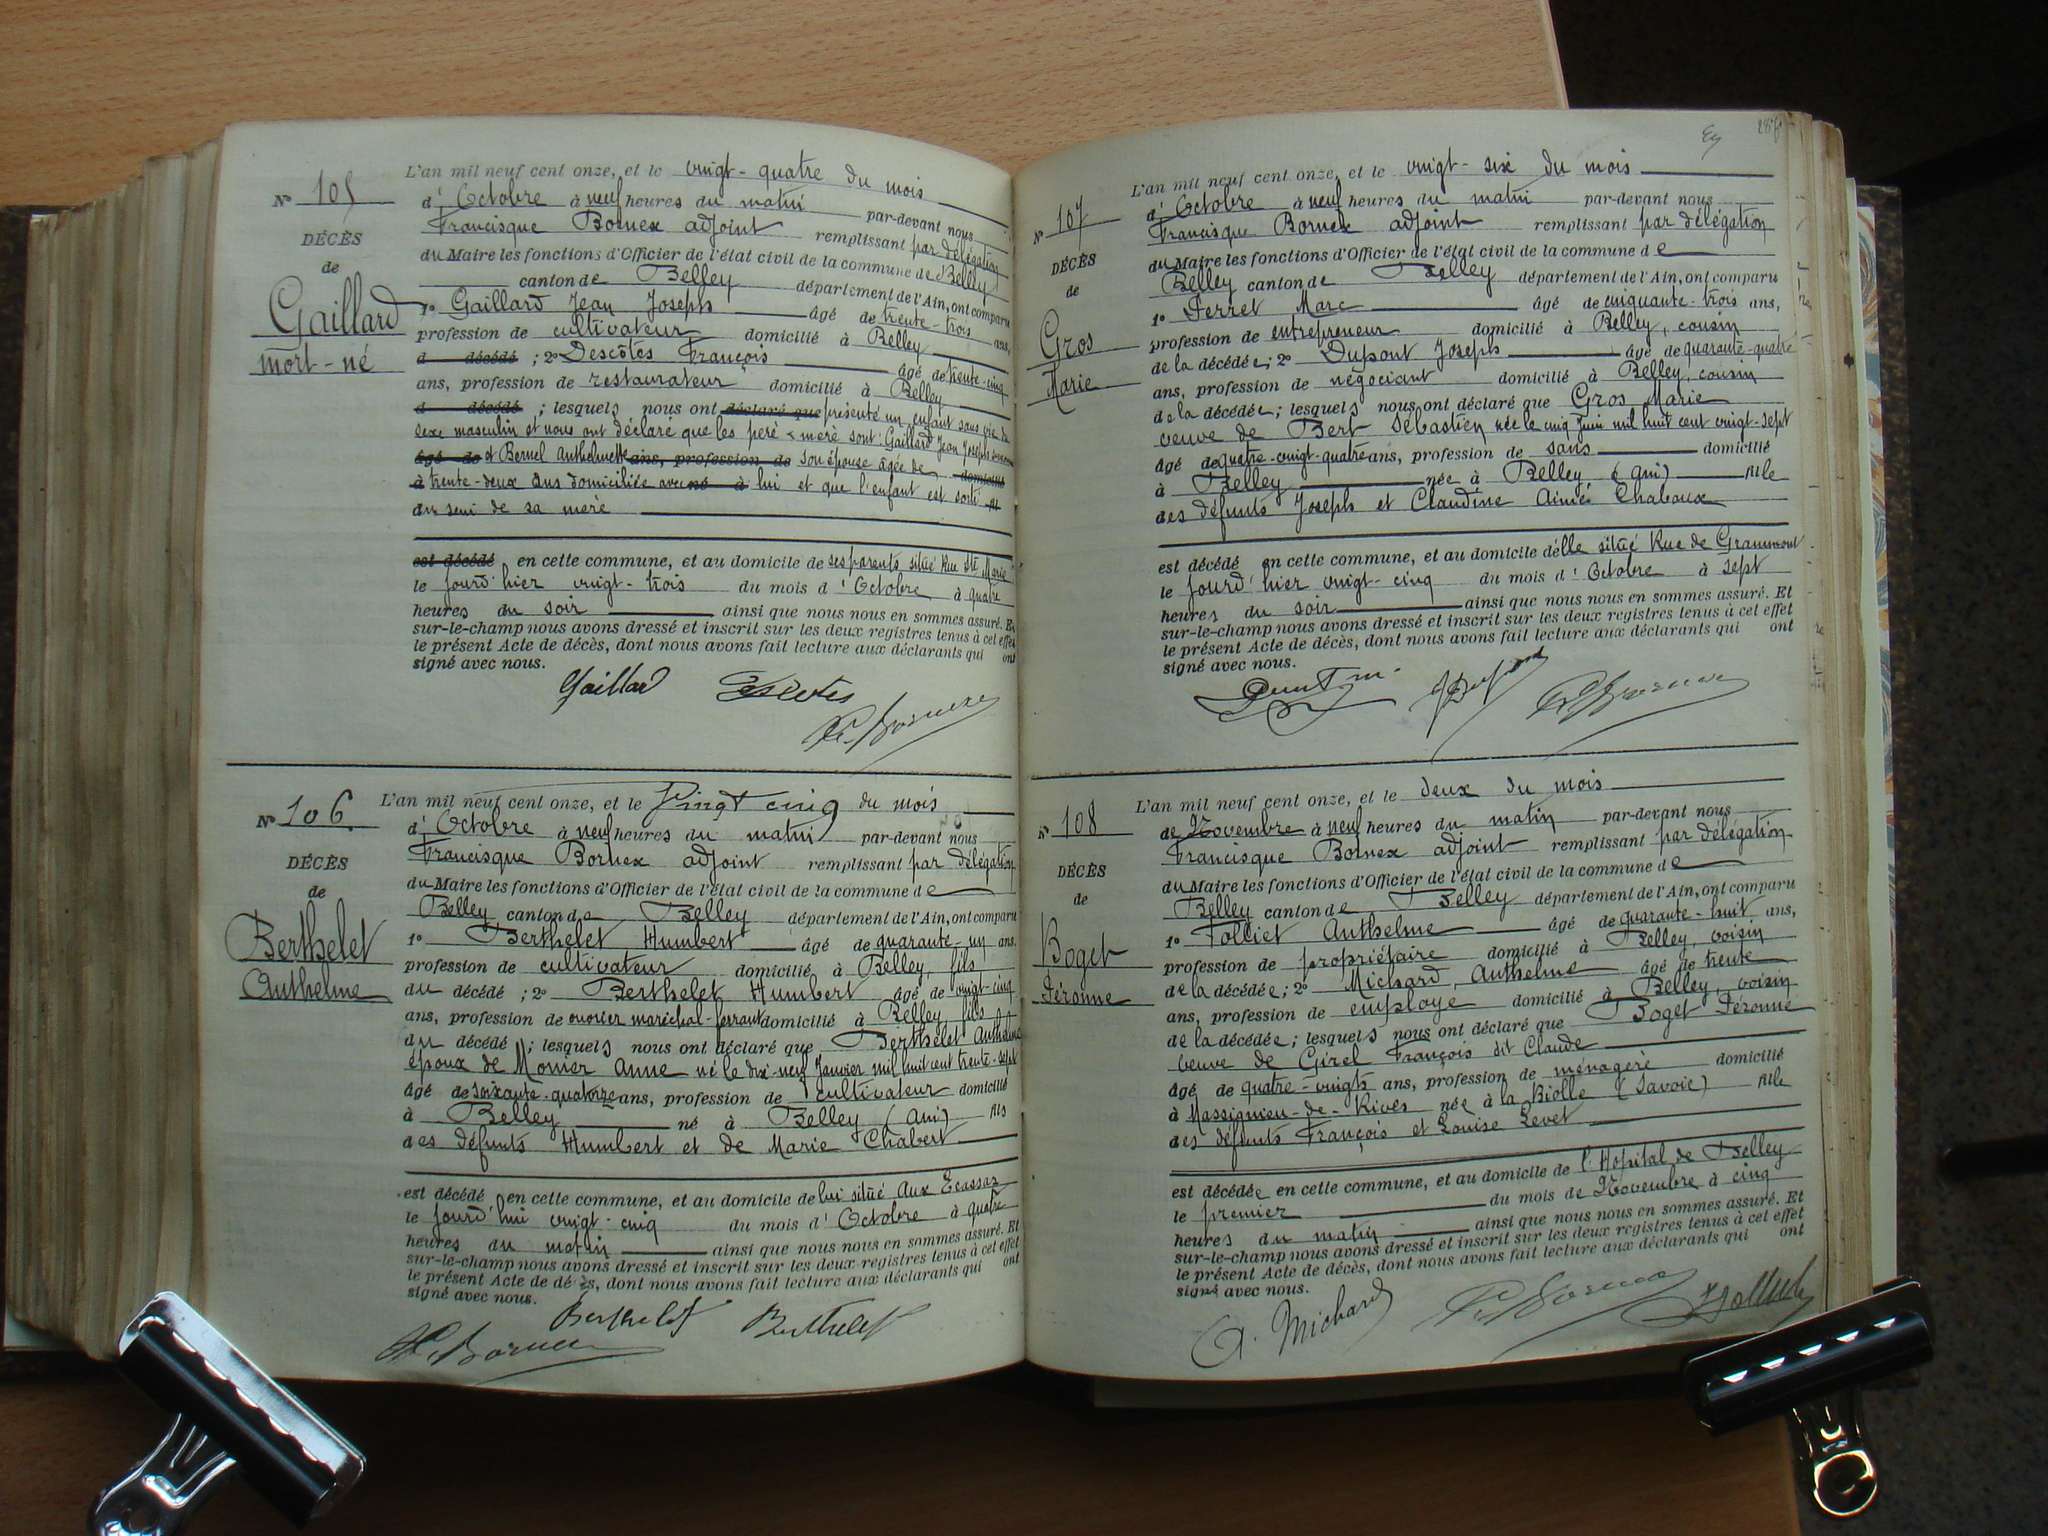 N° 105
DÉCÈS
de
Gaillard
mort-né
L'an mil neuf cent onze, et le vingt-quatre du mois
d'Octobre à neuf heures du matin par-devant nous
Francisque Bornex adjoint remplissant par délégation
du Maire les fonctions d'Officier de l'état civil de la commune de Belley
canton de Belley département de l'Ain, ont comparu
1° Gaillard Jean Joseph âgé de trente-trois ans,
profession de cultivateur domicilié à Belley
d décédé ; 2° Descôtes François âgé de trente-cinq
ans, profession de restaurateur domicilié à Belley
d décédé ; lesquels nous ont déclaré que présenté un enfant sans vie du
sexe masculin et nous ont déclaré que les père & mère sont: Gaillard Jean Joseph
âgé de et Bernel Anthelmette ans, profession de son épouse âgée de domicilié
à trente-deux ans domiciliée avec né à lui et que l'enfant est sorti fil
du sein de sa mère
est décédé en cette commune, et au domicile de ses parents situé Rue Ste Marie
le jourd'hier vingt-trois du mois d'Octobre à quatre
heures du soir ainsi que nous nous en sommes assuré. Et
sur-le-champ nous avons dressé et inscrit sur les deux registres tenus à cet effet
le présent Acte de décès, dont nous avons fait lecture aux déclarants qui ont
signé avec nous.
Gaillard Descôtes
Fr. Bornex
N° 106
DÉCÈS
de
Berthelet
Anthelme
L'an mil neuf cent onze, et le Vingt cinq du mois
d'Octobre à neuf heures du matin par-devant nous
Francisque Bornex adjoint remplissant par délégation
du Maire les fonctions d'Officier de l'état civil de la commune de
Belley canton de Belley département de l'Ain, ont comparu
1° Berthelet Humbert âgé de quarante-un ans.
profession de cultivateur domicilié à Belley, fils
du décédé ; 2° Berthelet Humbert âgé de vingt-cinq
ans, profession de ouvrier maréchal-ferrant domicilié à Belley fils
du décédé ; lesquels nous ont déclaré que Berthelet Anthelme
époux de Momer Anne né le dix-neuf Janvier mil huit cent trente-sept
âgé de soixante-quatorze ans, profession de cultivateur domicilié
à Belley né à Belley (Ain) fils
des défunts Humbert et de Marie Chabert
est décédé en cette commune, et au domicile de lui situé Aux Ecassaz
le jourd'hui vingt-cinq du mois d'Octobre à quatre
heures du matin ainsi que nous nous en sommes assuré. Et
sur-le-champ nous avons dressé et inscrit sur les deux registres tenus à cet effet
le présent Acte de décès, dont nous avons fait lecture aux déclarants qui ont
signé avec nous.
Berthelet Berthelet
Fr. Bornex
N° 107
DÉCÈS
de
Gros
Marie
L'an mil neuf cent onze, et le vingt-six du mois
d'Octobre à neuf heures du matin par-devant nous
Francisque Bornex adjoint remplissant par délégation
du Maire les fonctions d'Officier de l'état civil de la commune de
Belley canton de Belley département de l'Ain, ont comparu
1° Perret Marc âgé de cinquante-trois ans,
profession de entrepreneur domicilié à Belley, cousin
de la décédée ; 2° Dupont Joseph âgé de quarante-quatre
ans, profession de négociant domicilié à Belley, cousin
de la décédée ; lesquels nous ont déclaré que Gros Marie
veuve de Bert Sébastien née le cinq Juin mil huit cent vingt-sept
âgé de quatre-vingt-quatre ans, profession de sans domicilié
à Belley née à Belley, (Ain) fille
des défunts Joseph et Claudine Aimée Chabaux
est décédé en cette commune, et au domicile d'elle situé Rue de Grammont
le jourd'hier vingt-cinq du mois d'Octobre à sept
heures du soir ainsi que nous nous en sommes assuré. Et
sur-le-champ nous avons dressé et inscrit sur les deux registres tenus à cet effet
le présent Acte de décès, dont nous avons fait lecture aux déclarants qui ont
signé avec nous.
J Dupont Fr Bornex
N° 108
DÉCÈS
de
Boget
Péronne
L'an mil neuf cent onze, et le deux du mois
de Novembre à neuf heures du matin par-devant nous
Francisque Bornex adjoint remplissant par délégation
du Maire les fonctions d'Officier de l'état civil de la commune de
Belley canton de Belley département de l'Ain, ont comparu
1° Folliet Anthelme âgé de quarante-huit ans,
profession de propriétaire domicilié à Belley, voisin
de la décédée ; 2° Michard Anthelme âgé de trente
ans, profession de employé domicilié à Belley, voisin
de la décédée ; lesquels nous ont déclaré que Boget Péronne
veuve de Girel François dit Claude
âgé de quatre-vingts ans, profession de ménagère domicilié
à Massignieu-de-Rives née à la Biolle (Savoie) fille
des défunts François et Louise Levet
est décédée en cette commune, et au domicile de l'Hôpital de Belley
le premier du mois de Novembre à cinq
heures du matin ainsi que nous nous en sommes assuré. Et
sur-le-champ nous avons dressé et inscrit sur les deux registres tenus à cet effet
le présent Acte de décès, dont nous avons fait lecture aux déclarants qui ont
signé avec nous.
A. Michard Fr Bornex Folliet